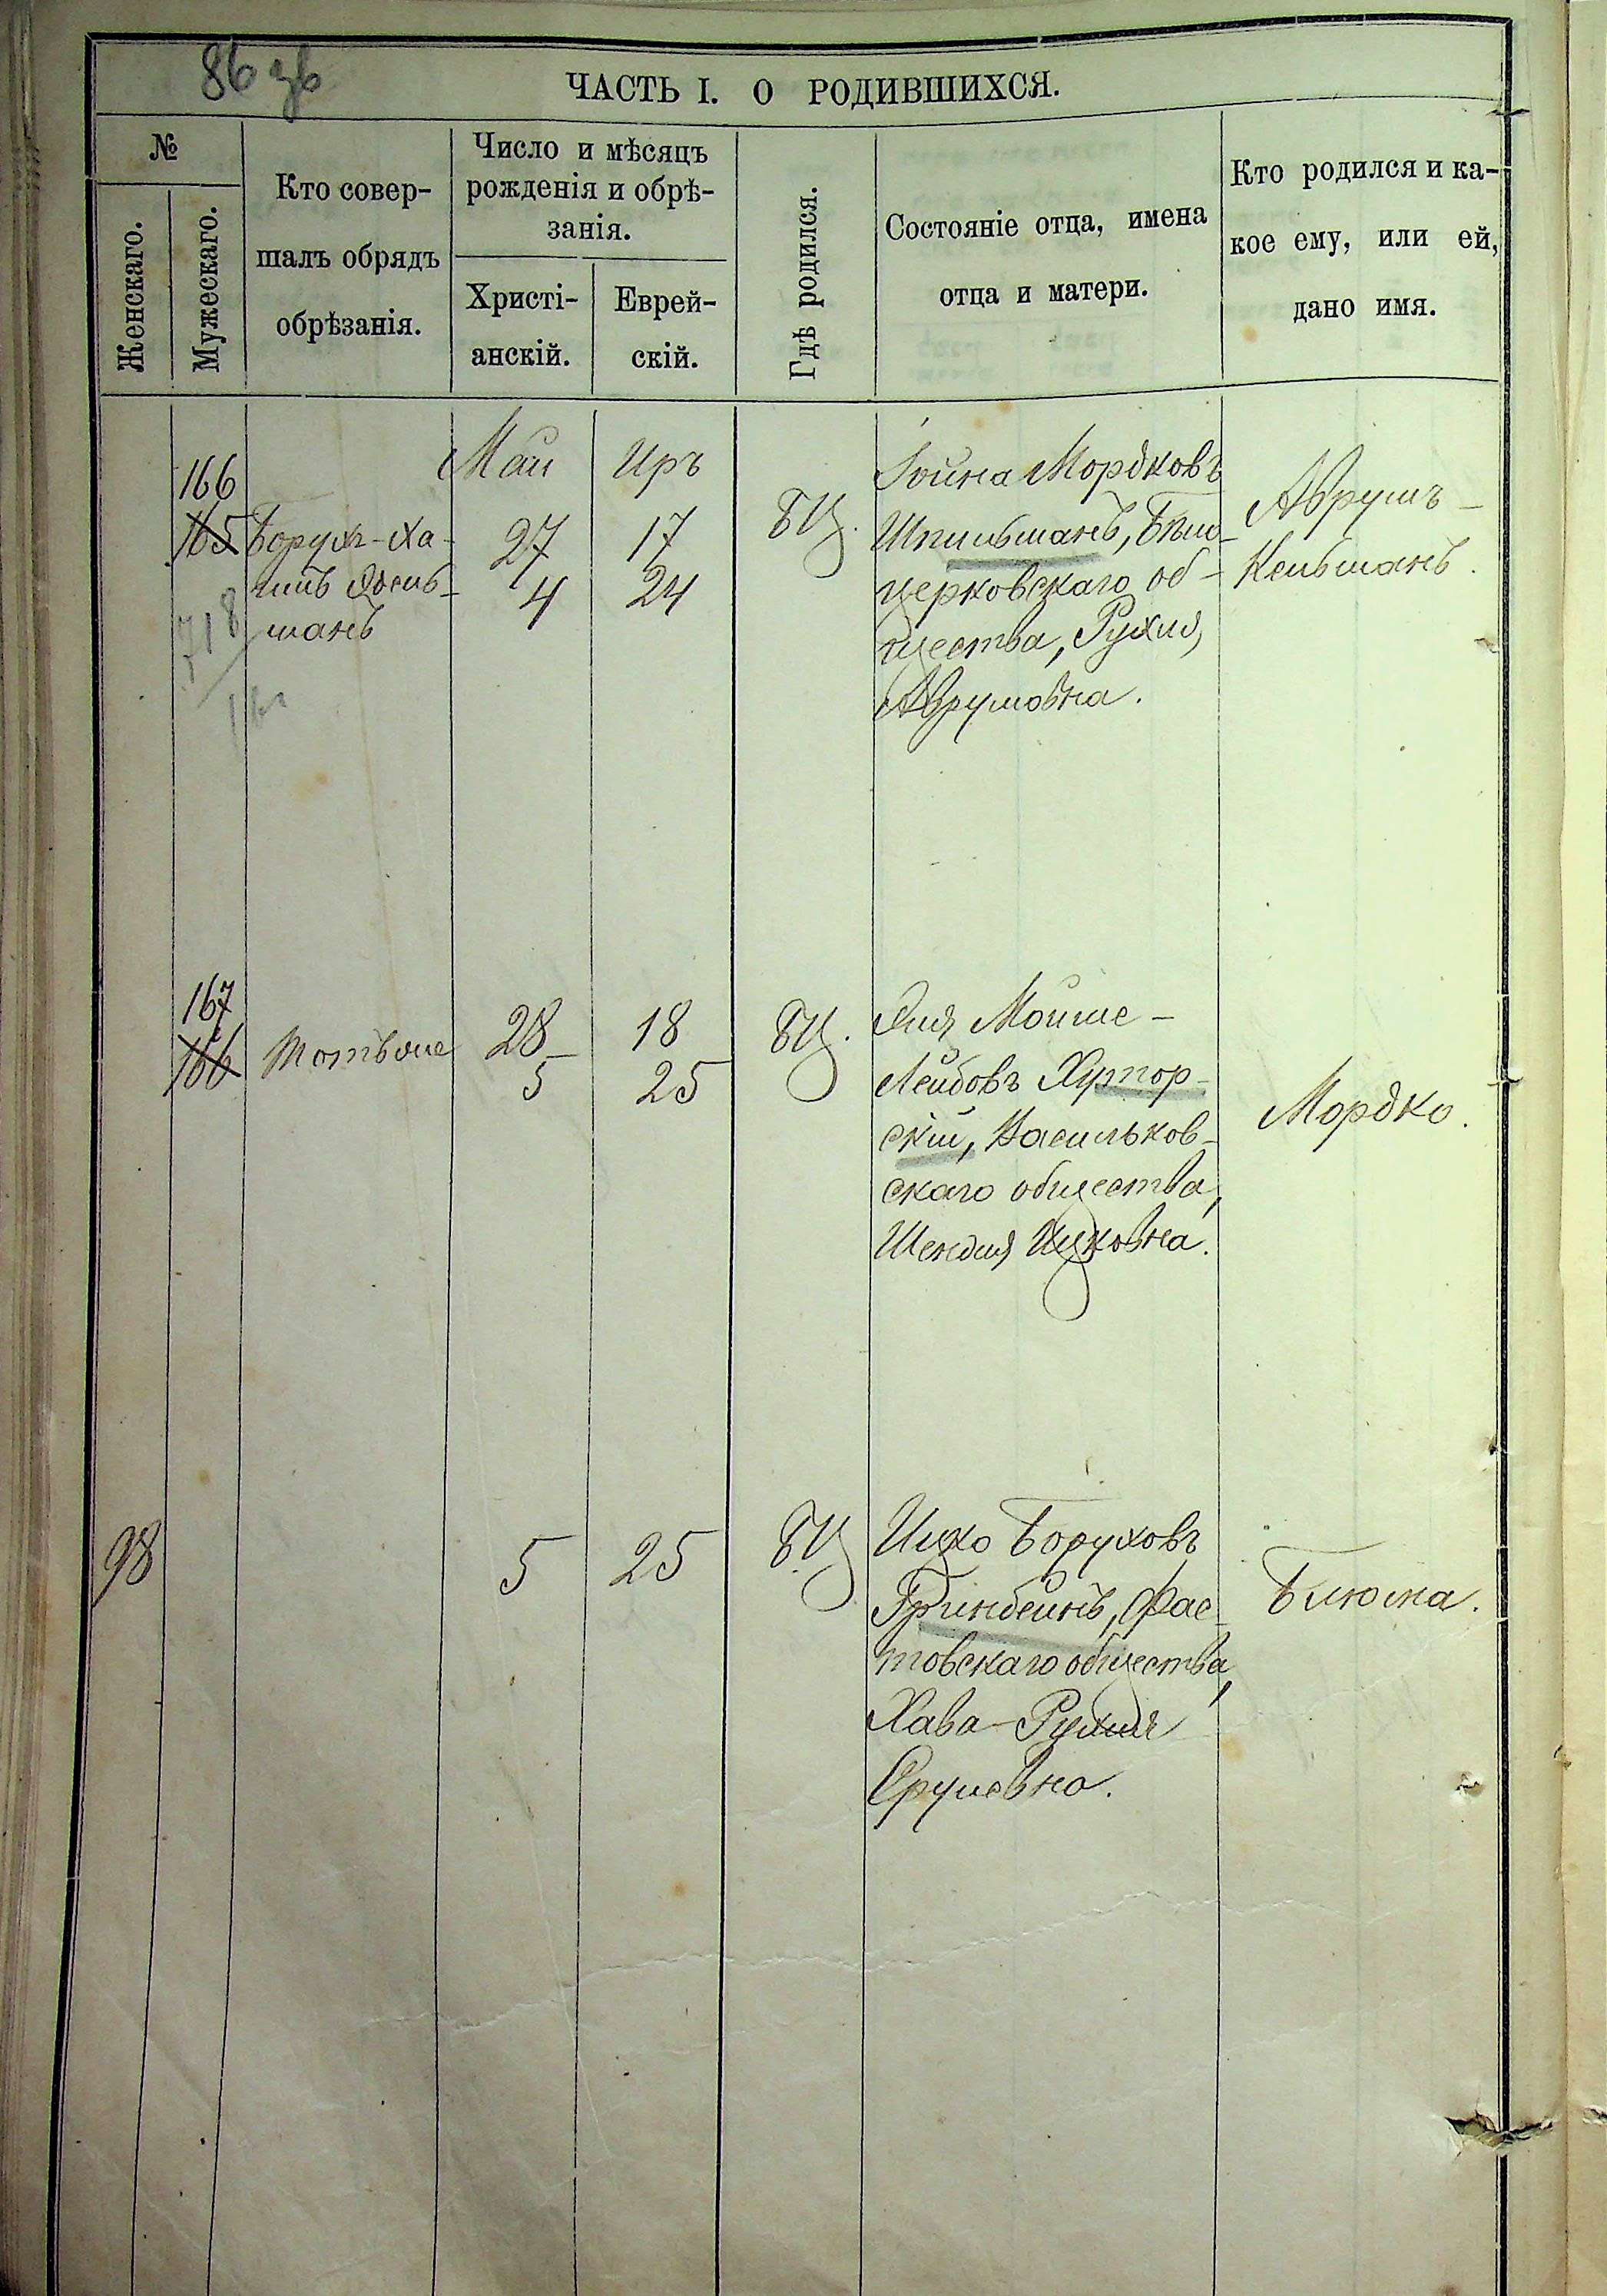 86 зв
ЧАСТЬ I. О РОДИВШИХСЯ.
№
Женскаго.
Мужескаго.
Кто совер-
шалъ обрядъ
обрѣзанія.
Число и мѣсяцъ
рожденія и обрѣ-
занія.
Христі-
анскій.
Еврей-
скій.
Гдѣ родился.
Состояніе отца, имена
отца и матери.
Кто родился и ка-
кое ему, или ей,
дано имя.
166
165
Борухъ-Ха-
имъ
манъ
718
Май
27
4
Иръ
17
24
БЦ.
Іойна Мордковъ
Шпильманъ, Бѣло-
церковскаго об-
щества, Рухля
Аврумовна.
Аврумъ-
Кельманъ.
167
166
Тотъ же
28
5
18
25
БЦ.
Эля Мойше-
Лейбовъ Хутор-
скій, Васильков-
скаго общества,
Шендля Ицковна.
Мордко.
98
5
25
БЦ
Ицко Боруховъ
Гринбейнъ, Фас-
товскаго общества,
Хава-Рухля
Срулевна.
Блюма.